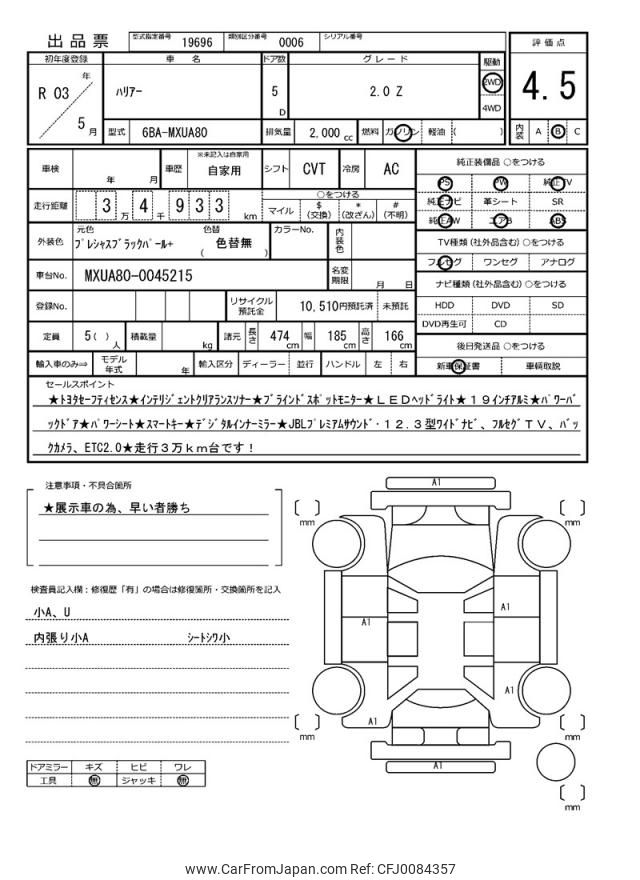 出品票 型式指定番号 19696 類別区分番号 0006 シリアル番号
評価点
4.5
内装 A B C
初年度登録 車名 ドア数 グレード 駆動
R 03 年 5 月 ハリアー 5 D 2.0 Z 2WD 4WD
型式 6BA-MXUA80 排気量 2,000 cc 燃料 ガソリン 軽油 ( )
車検 年 月 車歴 ※未記入は自家用 自家用 シフト CVT 冷房 AC
走行距離 3 万 4 千 9 3 3 km
○をつける
マイル $ (交換) * (改ざん) # (不明)
外装色 元色 プレシャスブラックパール+ 色替 ( 色替無 ) カラーNo. 内装色
車台No. MXUA80-0045215 名変期限 月 日
登録No. リサイクル預託金 10,510円預託済 未預託
定員 5 ( ) 人 積載量 kg 諸元 長さ 474 cm 幅 185 cm 高さ 166 cm
輸入車のみ⇒ モデル年式 年 輸入区分 ディーラー 並行 ハンドル 左 右
純正装備品 ○をつける
PS PW 純正TV
純正ナビ 革シート SR
純正AW エアB ABS
TV種類 (社外品含む) ○をつける
フルセグ ワンセグ アナログ
ナビ種類 (社外品含む) ○をつける
HDD DVD SD
DVD再生可 CD
後日発送品 ○をつける
新車保証書 車輌取説
セールスポイント
★トヨタセーフティセンス★インテリジェントクリアランスソナー★ブラインドスポットモニター★LEDヘッドライト★19インチアルミ★パワーバ
ックドア★パワーシート★スマートキー★デジタルインナーミラー★JBLプレミアムサウンド・12.3型ワイドナビ、フルセグTV、バッ
クカメラ、ETC2.0★走行3万km台です!
注意事項・不具合箇所
★展示車の為、早い者勝ち
検査員記入欄:修復歴「有」の場合は修復箇所・交換箇所を記入
小A、U
内張り小A シートシワ小
ドアミラー キズ ヒビ ワレ
工具 無 ジャッキ 無
A1
mm
mm
A1
A1
A1
A1
mm
mm
A1
mm
www.CarFromJapan.com Ref: CAJ0084357